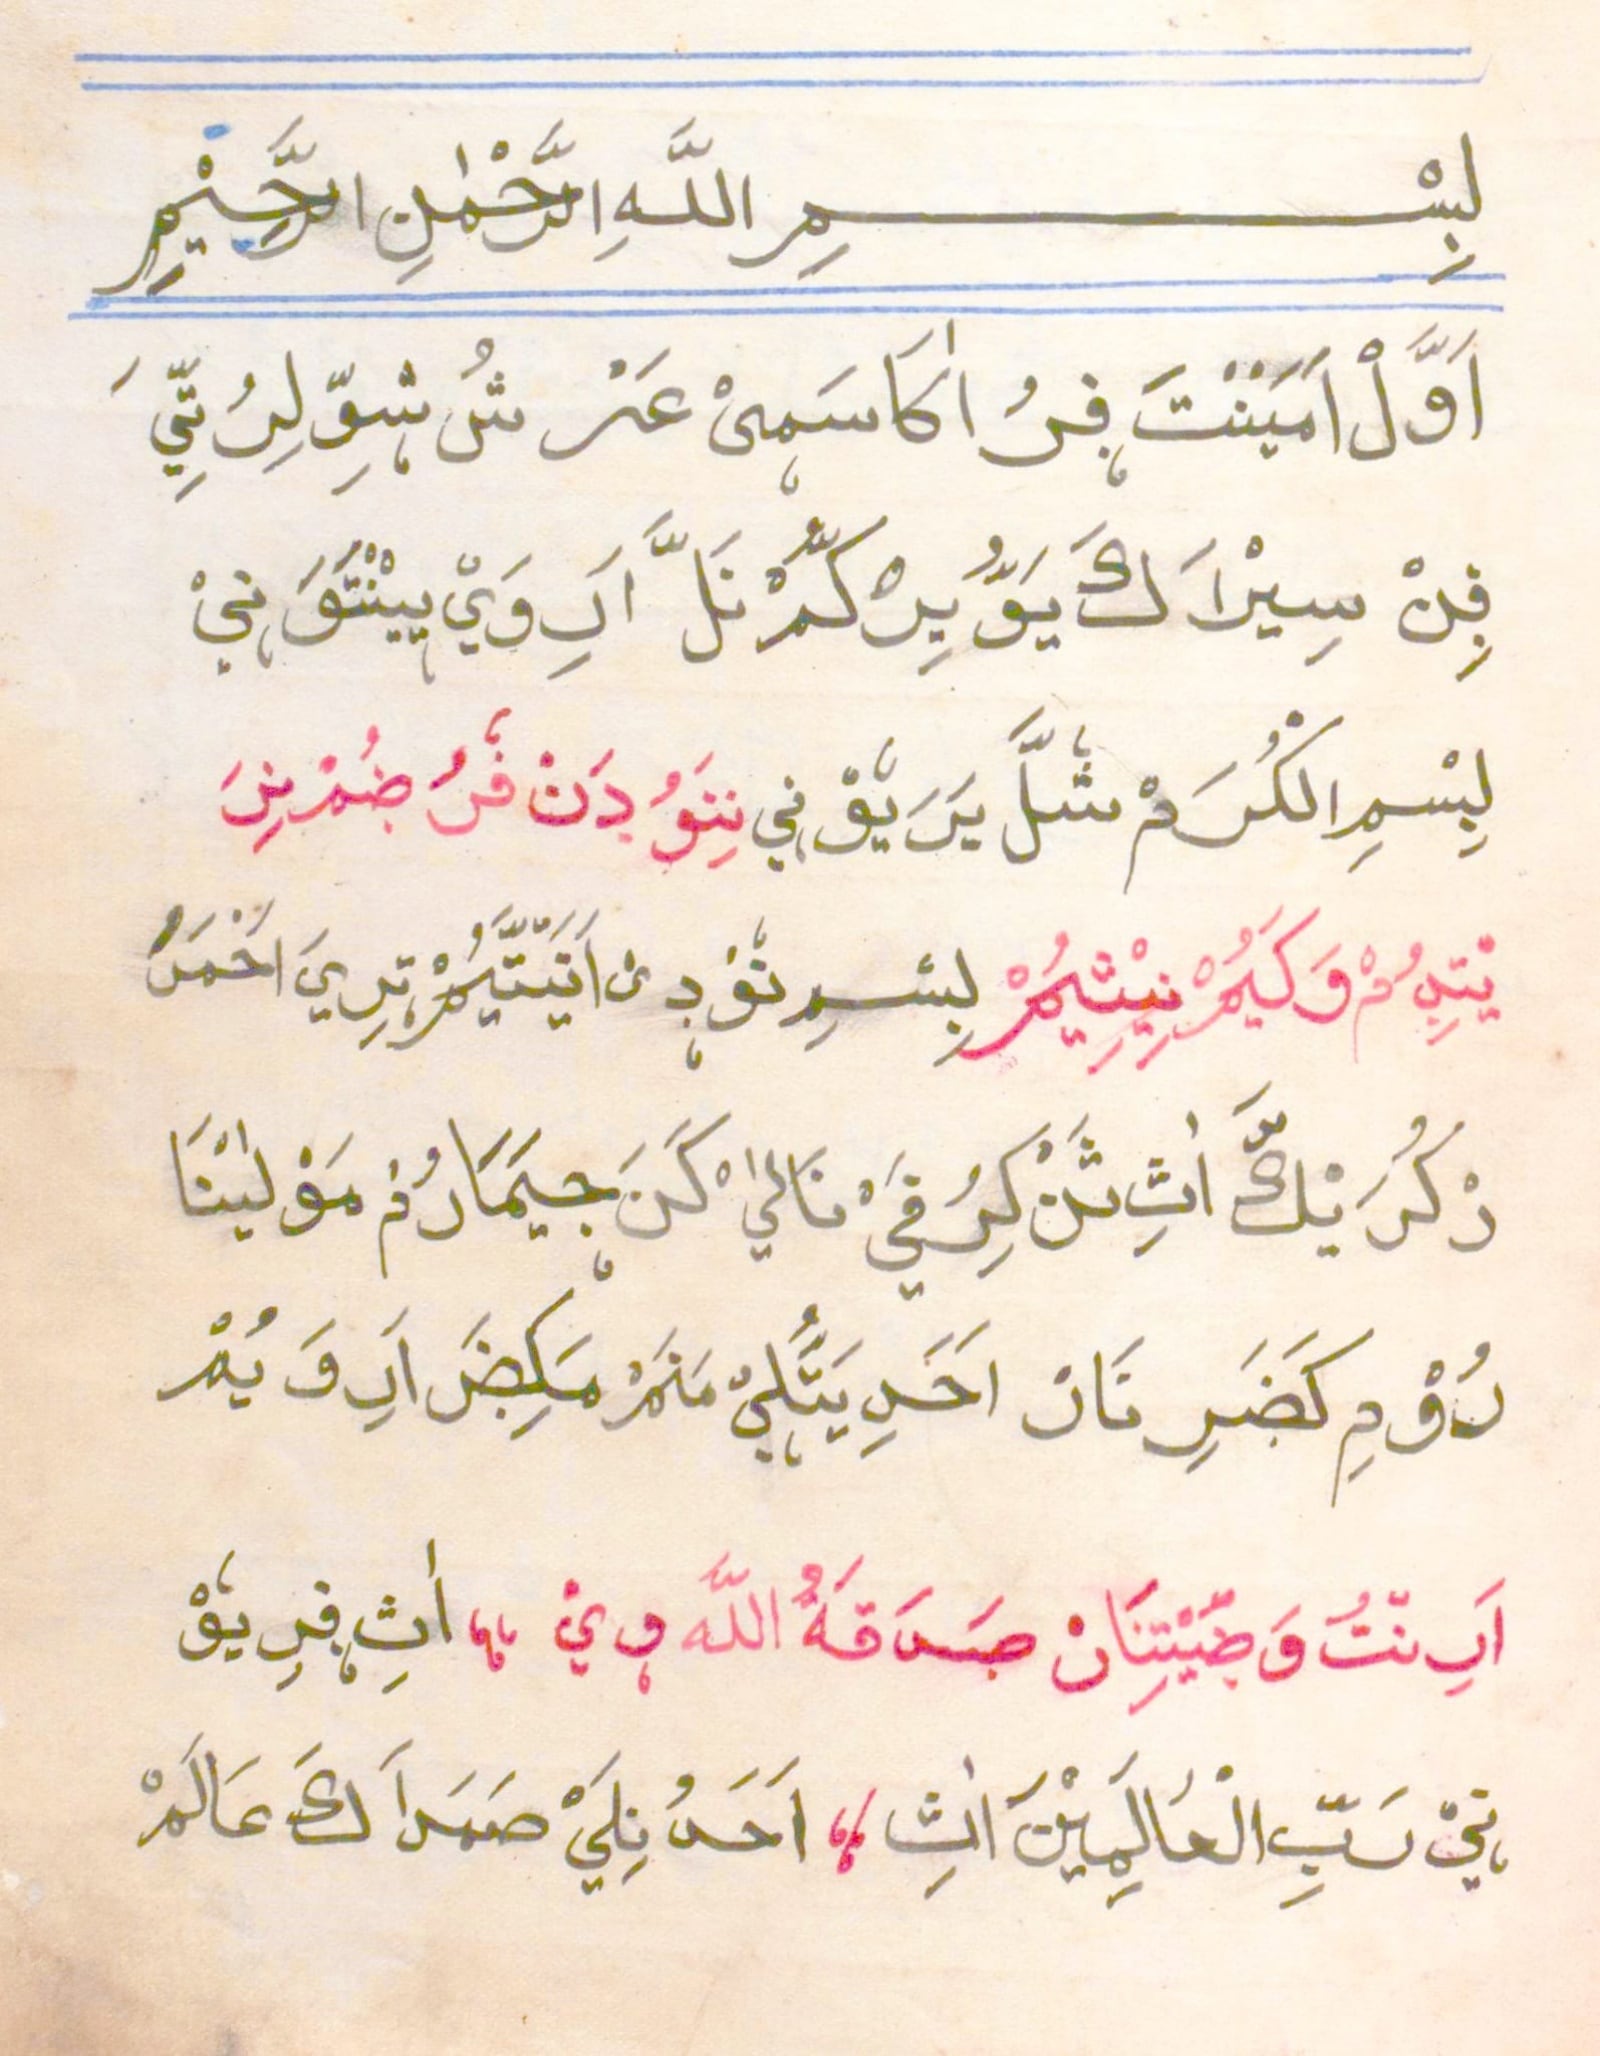 بِسْـــــــمِ اللَّهِ الرَّحْمٰنِ الرَّحِيْمِ
اَوَّلْ اَمَيَنْتَ ڣِرُ اٰكَاسَمِىْ عَرْ شُ شِوِّلِرُ تِّيَ
فِنْ سِيرْاَكَ يَوُّ يِرْ كُمّْ نَلَّ اَرِ وَيْ يِينْتَوَ نِيْ
بِسْمِ الْكُرَمْ شَلَّ يَرَ يۏْ نِي نِنَوُ دَنْ فَرُ ضُمْ نِرَ
يْتِدُمْ وَكَيُمْ نِيْتِيُمْ بِسْمِ نۏْ دِىْ اَنَيَتَّيُمْ تِرِيَ اَحْمَدُ
رْكُرَ يْكَّ اٰثِ تَنْ كِرُ فَيْ نَالَيْ كَرَ جِيمَارُمْ مَوْلٰينَا
رُوْمِ كَضَرِ نَانْ اَحَدِ يَتَّلِيْ مَنَمْ مَكِضَرَ اَرِ وَ يُمْ
اَرِ نْتُ وَضَيْتِنَانْ صَدَقَةُ اللَّه وِيْ ،، اٰثِ ڣِرِ يۏْ
نِيْ رَبِّ الْعٰالَمِيْنَ اٰثِ ،، اَحَدُ نِلَيْ صَمَدَاَكَ عَالَمْ